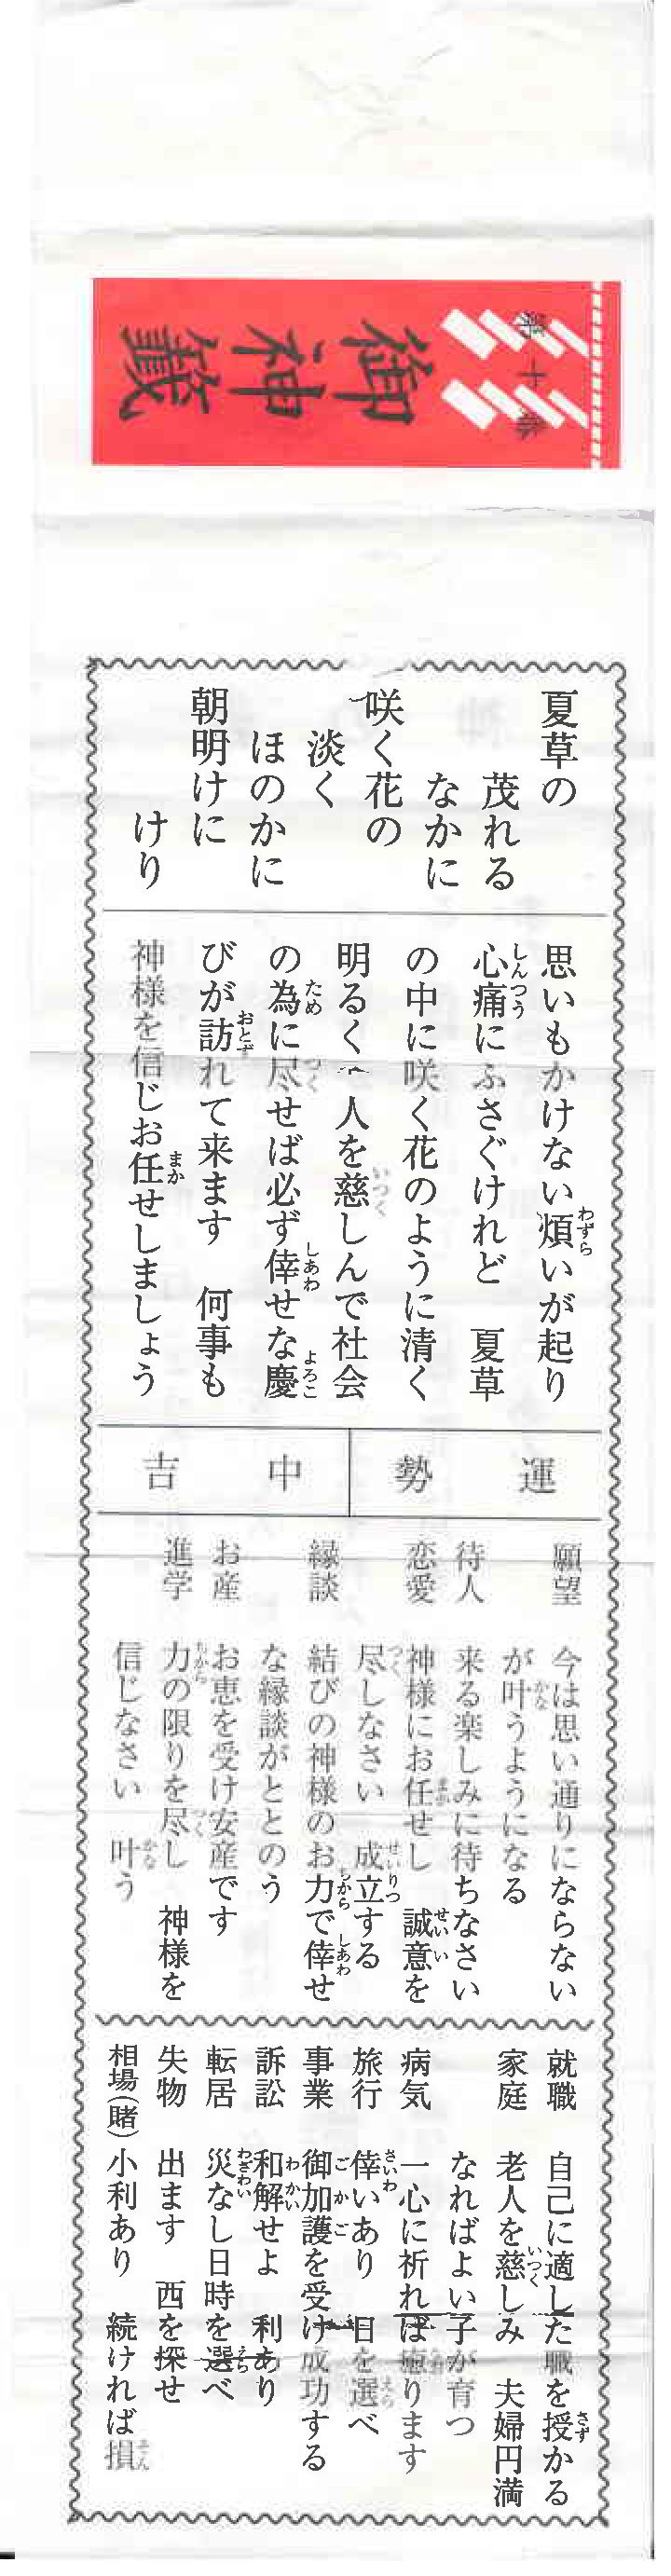 第十番
御神籤
夏草の
茂れる
なかに
咲く花の
淡く
ほのかに
朝明けに
けり
思いもかけない煩いが起り
心痛にふさぐけれど　夏草
の中に咲く花のように清く
明るく　人を慈しんで社会
の為に尽せば必ず倖せな慶
びが訪れて来ます　何事も
神様を信じお任せしましょう
運勢　中吉
願望　今は思い通りにならない
が叶うようになる
待人　来る楽しみに待ちなさい
恋愛　神様にお任せし　誠意を
尽しなさい　成立する
縁談　結びの神様のお力で倖せ
な縁談がととのう
お産　お恵を受け安産です
進学　力の限りを尽し　神様を
信じなさい　叶う
就職　自己に適した職を授かる
家庭　老人を慈しみ　夫婦円満
なればよい子が育つ
病気　一心に祈れば癒ります
旅行　倖いあり　日を選べ
事業　御加護を受け成功する
訴訟　和解せよ　利あり
転居　災なし日時を選べ
失物　出ます　西を探せ
相場(賭)　小利あり　続ければ損